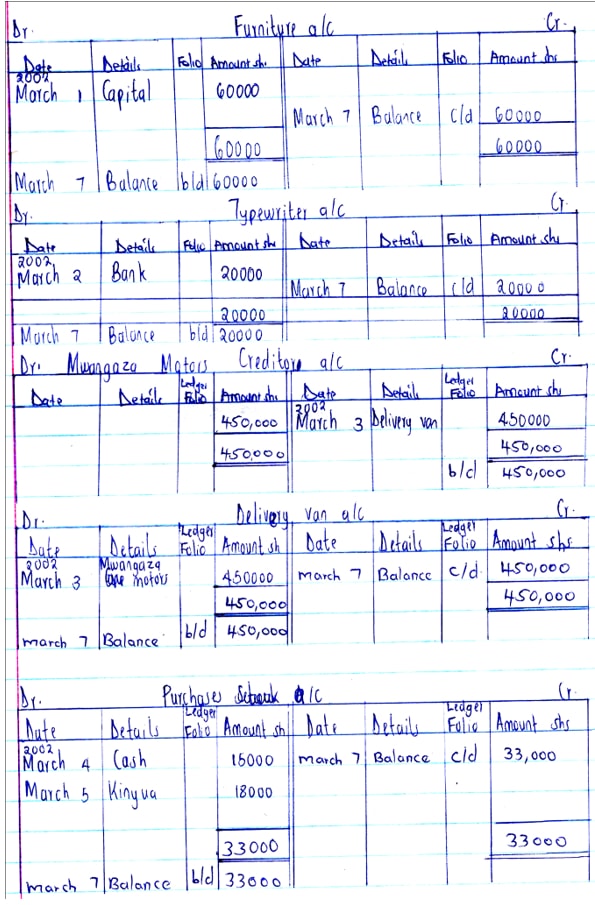 Dr. Furniture a/c Cr.
Date Details Folio Amount shs Date Details Folio Amount shs
2002
March 1 Capital 60000
March 7 Balance c/d 60000
60000 60000
March 7 Balance b/d 60000
Dr. Typewriter a/c Cr.
Date Details Folio Amount shs Date Details Folio Amount shs
2002
March 2 Bank 20000
March 7 Balance c/d 20000
20000 20000
March 7 Balance b/d 20000
Dr. Mwangaza Motors Creditors a/c Cr.
Date Details Ledger Folio Amount shs Date Details Ledger Folio Amount shs
2002
450,000 March 3 Delivery van 450000
450,000 450,000
b/d 450,000
Dr. Delivery van a/c Cr.
Date Details Ledger Folio Amount sh Date Details Ledger Folio Amount shs
2002 Mwangaza
March 3 motors 450000 march 7 Balance c/d 450,000
450,000 450,000
march 7 Balance b/d 450,000
Dr. Purchases a/c Cr.
Date Details Ledger Folio Amount sh Date Details Ledger Folio Amount shs
2002
March 4 Cash 15000 march 7 Balance c/d 33,000
March 5 Kinyua 18000
33000 33000
march 7 Balance b/d 33000